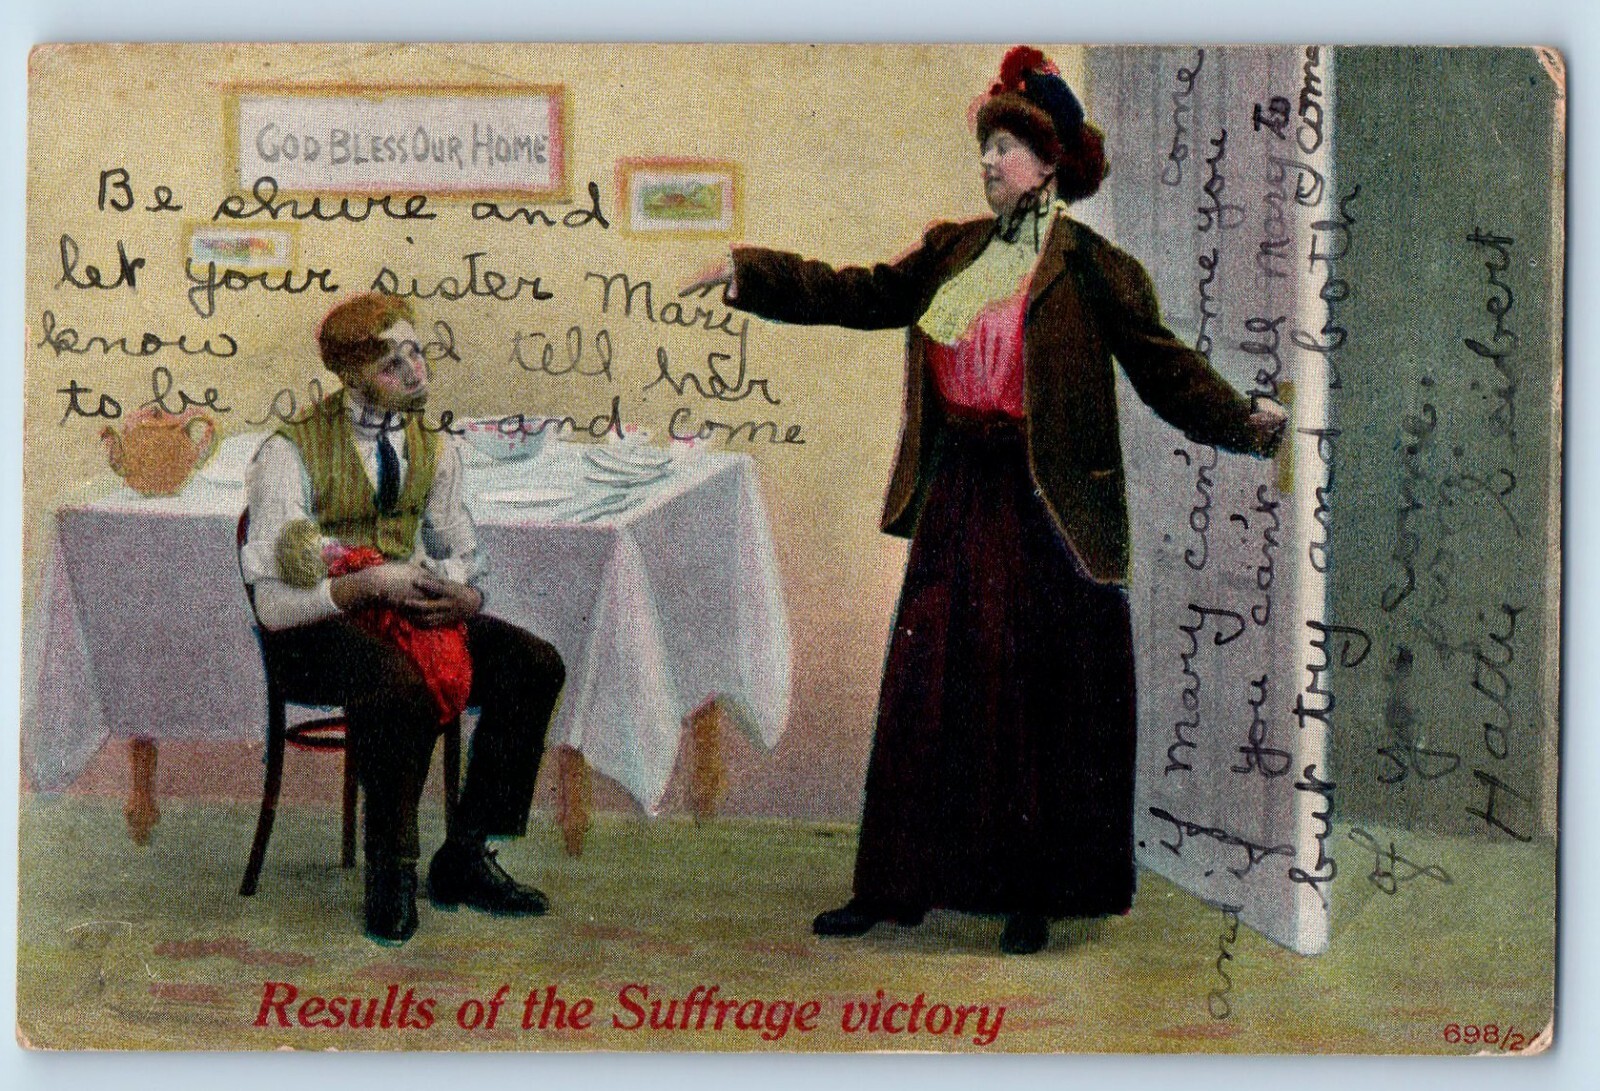 GOD BLESS OUR HOME
Be shure and
let your sister Mary
know and tell her
to be shure and come
if Mary can't come you come
and if you can't tell Mary to
but try and both come
of you come.
Hattie
Results of the Suffrage victory
698/2